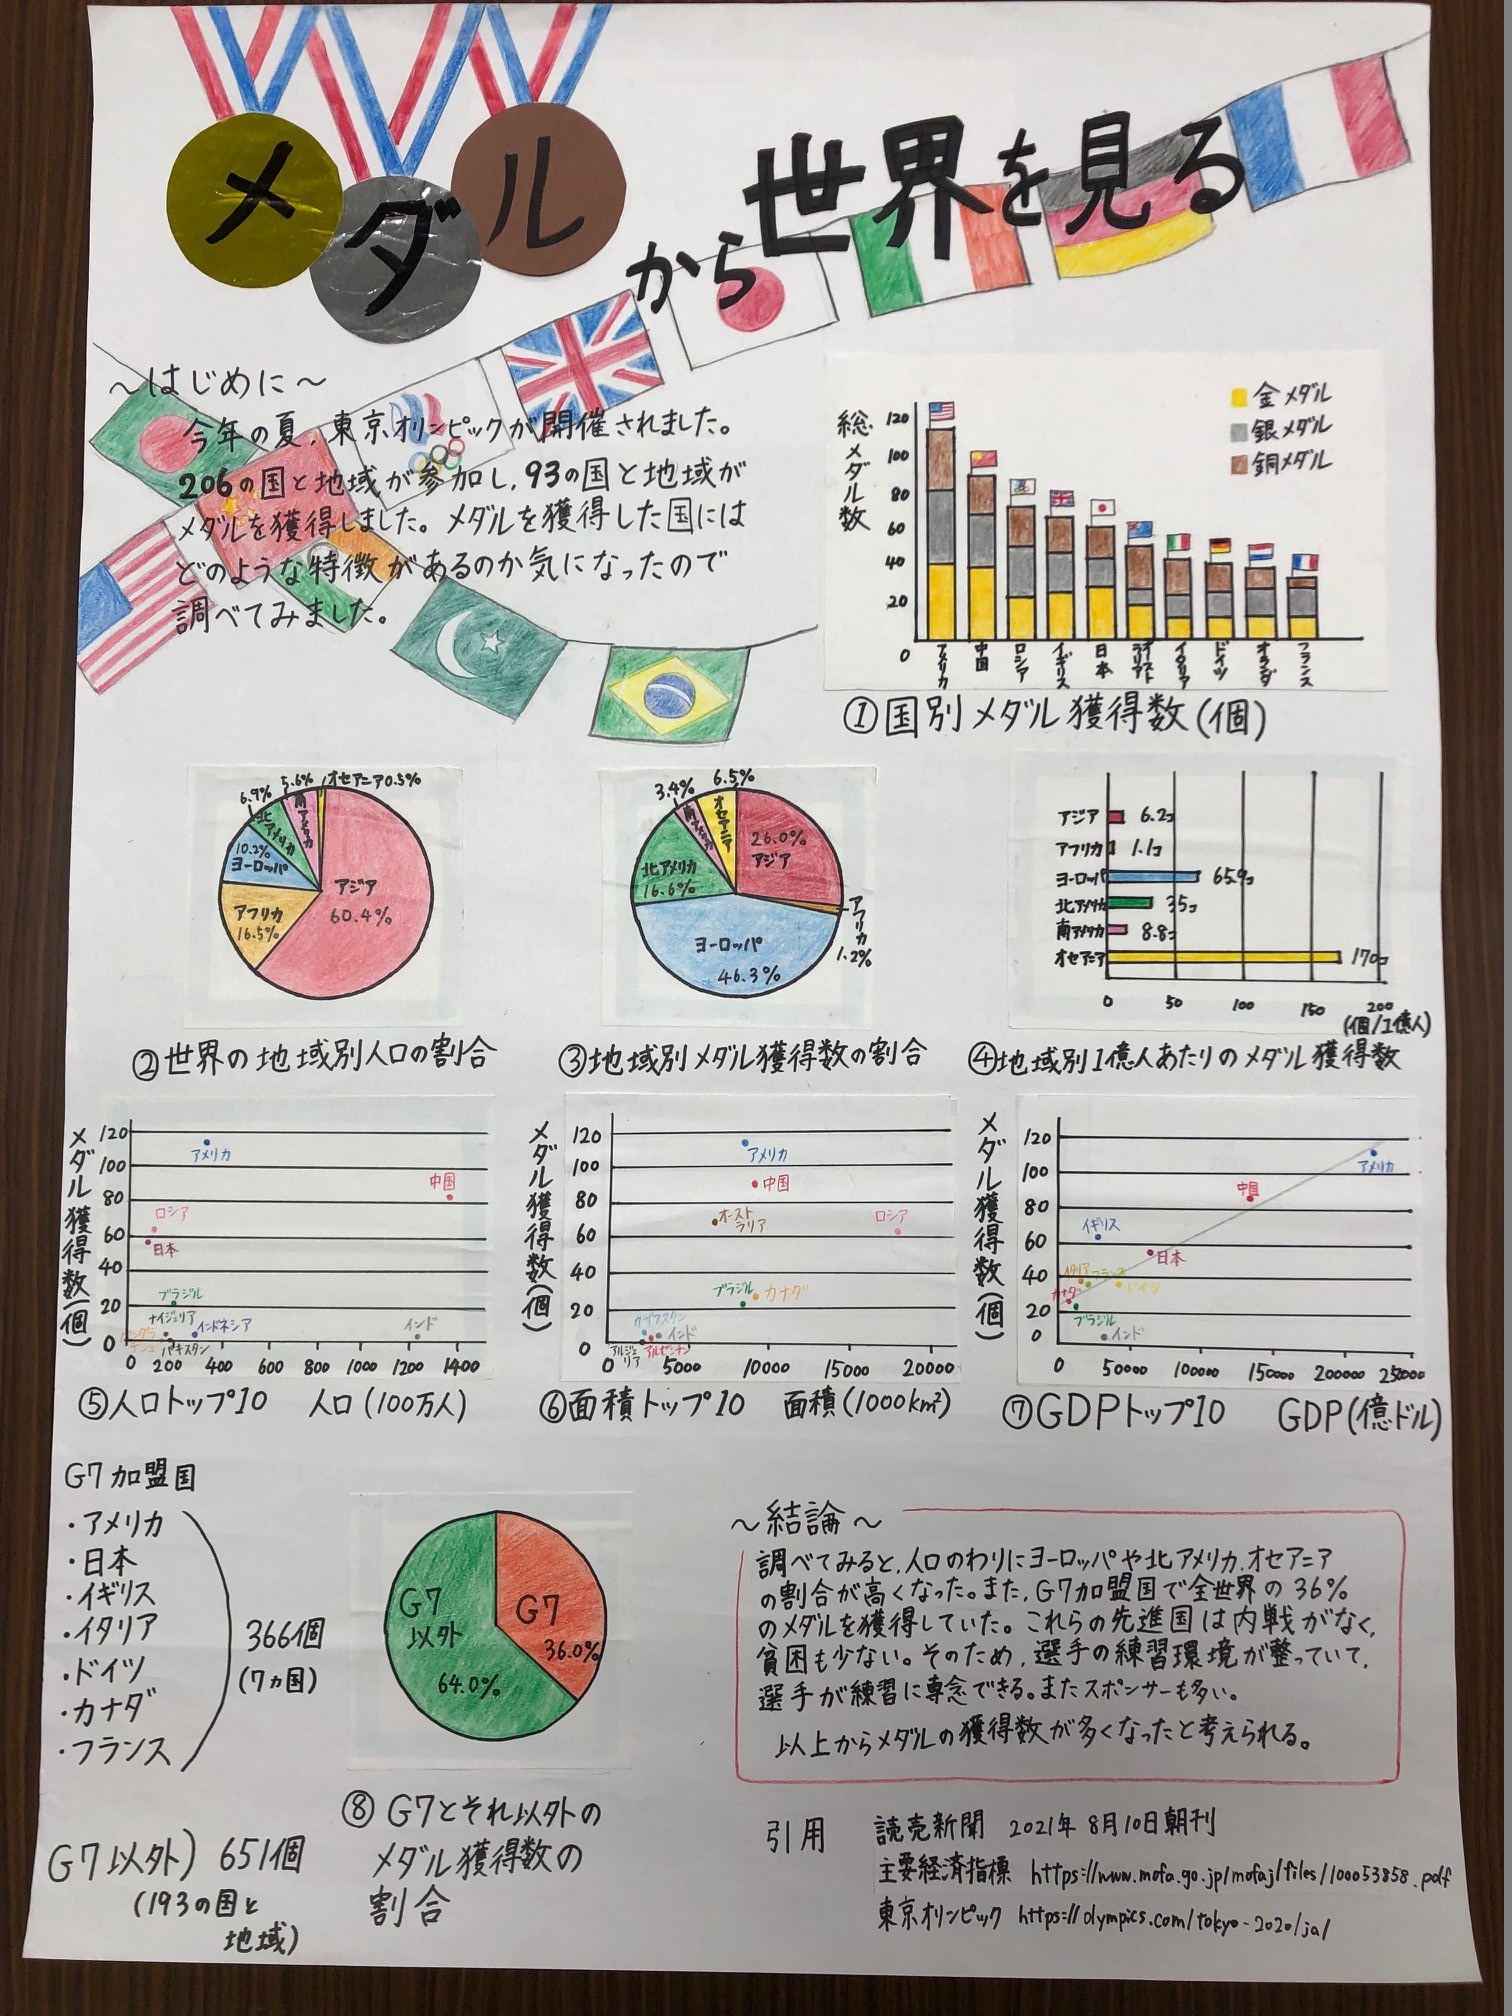 メダルから世界を見る
～はじめに～
今年の夏、東京オリンピックが開催されました。
206の国と地域が参加し、93の国と地域が
メダルを獲得しました。メダルを獲得した国には
どのような特徴があるのか気になったので
調べてみました。
総メダル数
120
100
80
60
40
20
0
金メダル
銀メダル
銅メダル
アメリカ
中国
ロシア
イギリス
日本
オーストラリア
イタリア
ドイツ
オランダ
フランス
①国別メダル獲得数(個)
オセアニア0.5%
5.6%
南アメリカ
6.9%
北アメリカ
10.2%
ヨーロッパ
アフリカ
16.5%
アジア
60.4%
②世界の地域別人口の割合
6.5%
オセアニア
3.4%
南アメリカ
北アメリカ
16.6%
26.0%
アジア
アフリカ
1.2%
ヨーロッパ
46.3%
③地域別メダル獲得数の割合
アジア 6.2コ
アフリカ 1.1コ
ヨーロッパ 65.9コ
北アメリカ 35コ
南アメリカ 8.8コ
オセアニア 170コ
0 50 100 150 200
(個/1億人)
④地域別1億人あたりのメダル獲得数
メダル獲得数(個)
120
100
80
60
40
20
0
アメリカ
中国
ロシア
日本
ブラジル
ナイジェリア
インドネシア
バングラデシュ
パキスタン
インド
0 200 400 600 800 1000 1200 1400
⑤人口トップ10 人口(100万人)
メダル獲得数(個)
120
100
80
60
40
20
0
アメリカ
中国
オーストラリア
ロシア
ブラジル
カナダ
カザフスタン
インド
アルジェリア
アルゼンチン
0 5000 10000 15000 20000
⑥面積トップ10 面積(1000km²)
メダル獲得数(個)
120
100
80
60
40
20
0
アメリカ
中国
イギリス
日本
イタリア
フランス
ドイツ
カナダ
ブラジル
インド
0 50000 100000 150000 200000 250000
⑦GDPトップ10 GDP(億ドル)
G7加盟国
・アメリカ
・日本
・イギリス
・イタリア
・ドイツ
・カナダ
・フランス
366個
(7ヵ国)
G7以外) 651個
(193の国と
地域)
G7
以外
64.0%
G7
36.0%
⑧G7とそれ以外の
メダル獲得数の
割合
～結論～
調べてみると、人口のわりにヨーロッパや北アメリカ、オセアニア
の割合が高くなった。また、G7加盟国で全世界の36%
のメダルを獲得していた。これらの先進国は内戦がなく、
貧困も少ない。そのため、選手の練習環境が整っていて、
選手が練習に専念できる。またスポンサーも多い。
以上からメダルの獲得数が多くなったと考えられる。
引用 読売新聞 2021年8月10日朝刊
主要経済指標 https://www.mofa.go.jp/mofaj/files/100053858.pdf
東京オリンピック https://olympics.com/tokyo-2020/ja/